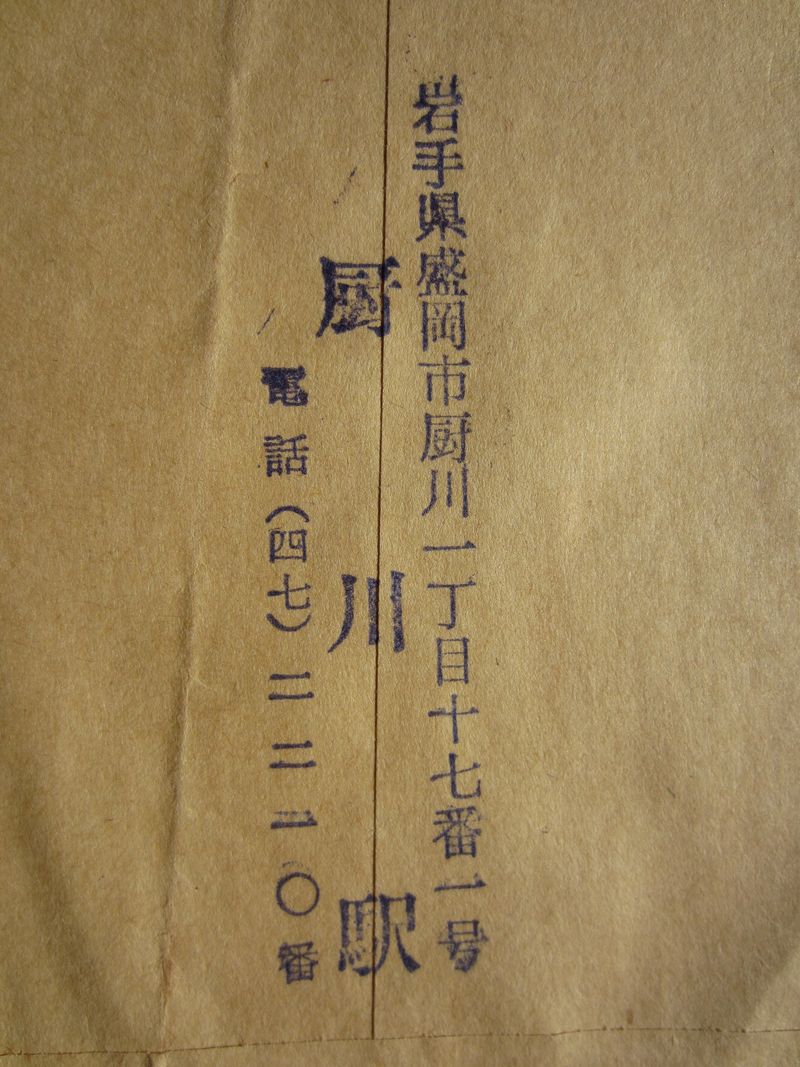 岩手県盛岡市厨川一丁目十七番一号
厨川駅
電話(四七)二二〇番